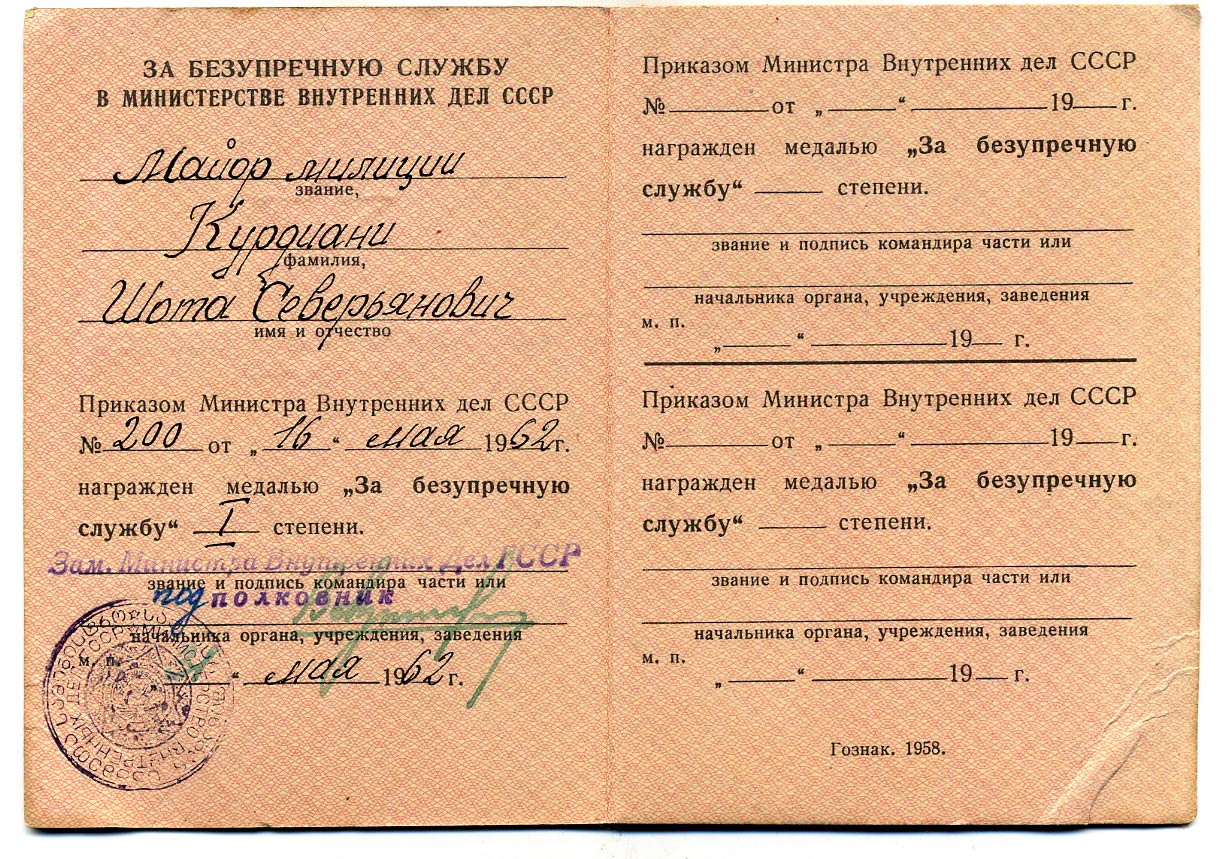 ЗА БЕЗУПРЕЧНУЮ СЛУЖБУ
В МИНИСТЕРСТВЕ ВНУТРЕННИХ ДЕЛ СССР
Майор милиции
звание,
Курдиани
фамилия,
Шота Северьянович
имя и отчество
Приказом Министра Внутренних дел СССР
№ 200 от „16“ мая 1962 г.
награжден медалью „За безупречную
службу“ I степени.
Зам. Министра Внутренних Дел ГССР
звание и подпись командира части или
подполковник
начальника органа, учреждения, заведения
м. п.
“ мая 1962 г.
Приказом Министра Внутренних дел СССР
№ от „ “ 19 г.
награжден медалью „За безупречную
службу“ степени.
звание и подпись командира части или
начальника органа, учреждения, заведения
м. п.
„ “ 19 г.
Приказом Министра Внутренних дел СССР
№ от „ “ 19 г.
награжден медалью „За безупречную
службу“ степени.
звание и подпись командира части или
начальника органа, учреждения, заведения
м. п.
„ “ 19 г.
Гознак. 1958.